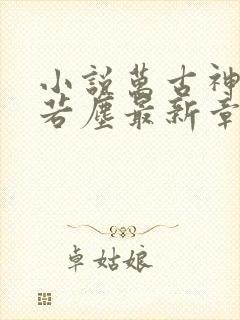 小說萬古神
若塵最新章
卓姑娘